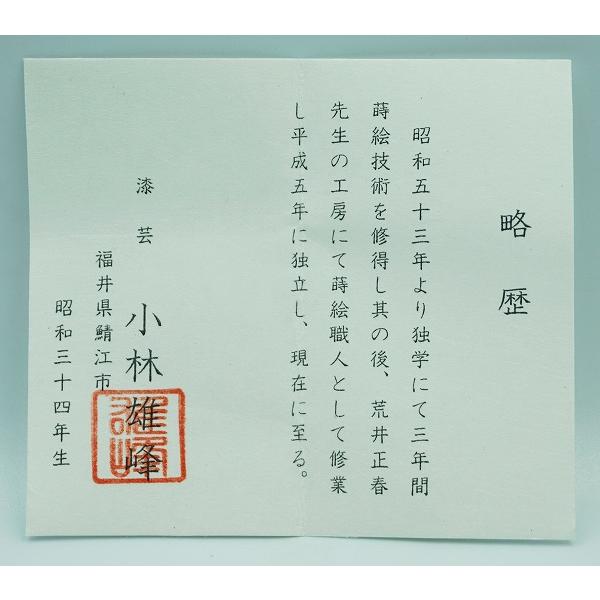 略歴
昭和五十三年より独学にて三年間
蒔絵技術を修得し其の後、荒井正春
先生の工房にて蒔絵職人として修業
し平成五年に独立し、現在に至る。
漆芸 小林雄峰
福井県鯖江市
昭和三十四年生
雄峰